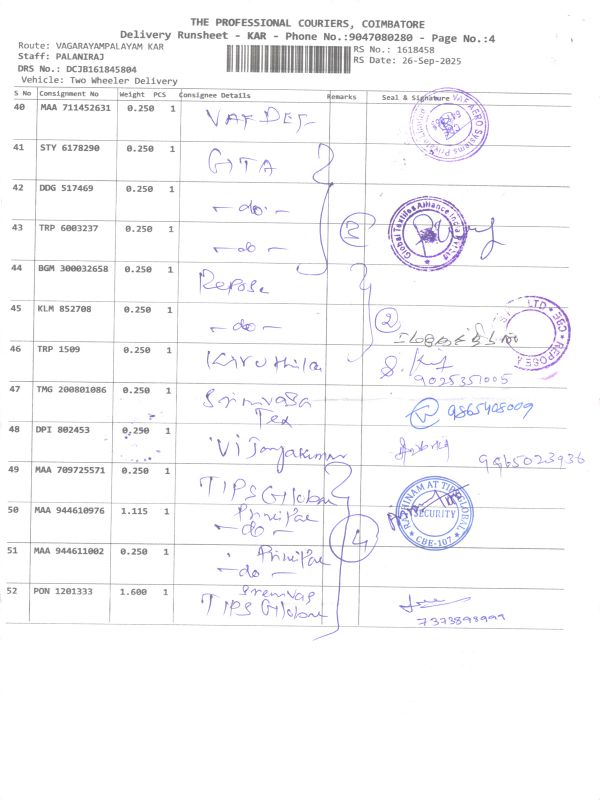 THE PROFESSIONAL COURIERS, COIMBATORE
Delivery Runsheet - KAR - Phone No.:9047080280 - Page No.:4
Route: VAGARAYAMPALAYAM KAR
RS No.: 1618458
Staff: PALANIRAJ
RS Date: 26-Sep-2025
DRS No.: DCJB161845804
Vehicle: Two Wheeler Delivery
S No Consignment No Weight PCS Consignee Details Remarks Seal & Signature
40 MAA 711452631 0.250 1
41 STY 6178290 0.250 1 GITA
42 DDG 517469 0.250 1 -do-
43 TRP 6003237 0.250 1 -do- 3
Global Textiles Alliance India Pvt Ltd
44 BGM 300032658 0.250 1 Repose
45 KLM 852708 0.250 1 -do- 2
46 TRP 1509 0.250 1 Karuthika
9025351005
47 TMG 200801086 0.250 1 Srinivasa
Tex 9865408009
48 DPI 802453 0.250 1 Vijayakumar
9965023936
49 MAA 709725571 0.250 1 TIPS Global
50 MAA 944610976 1.115 1 Principal
-do- 4
RATHINAM AT TIPS GLOBAL
SECURITY
CBE-107
51 MAA 944611002 0.250 1 Principal
-do-
52 PON 1201333 1.600 1 Srenivas
TIPS Global
7373898999